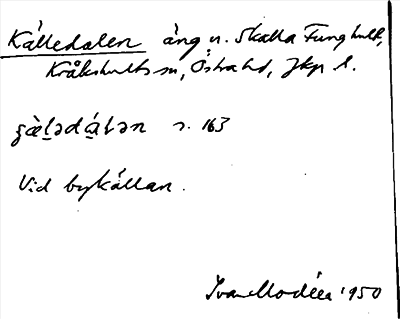 Källedalen äng u. Skalla Funghult,
Kråkshults sn, Östra hd, Jkp l.
s. 163
Vid bykällan.
Ivar Modéer 1950